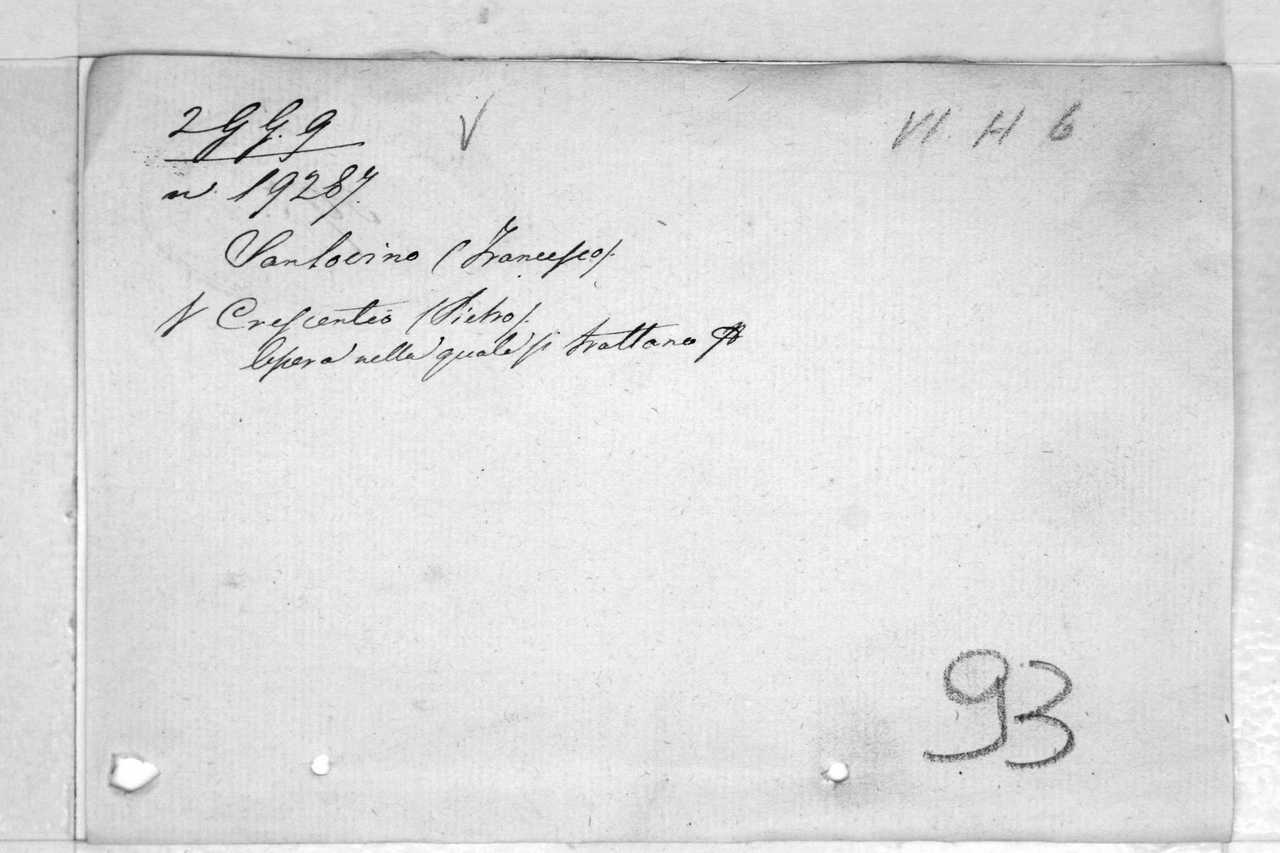 2 G G. 9
VI H 6
n. 19287.
Sansovino (Francesco).
V Crescentio (Pietro).
Opera nella quale si trattano
93